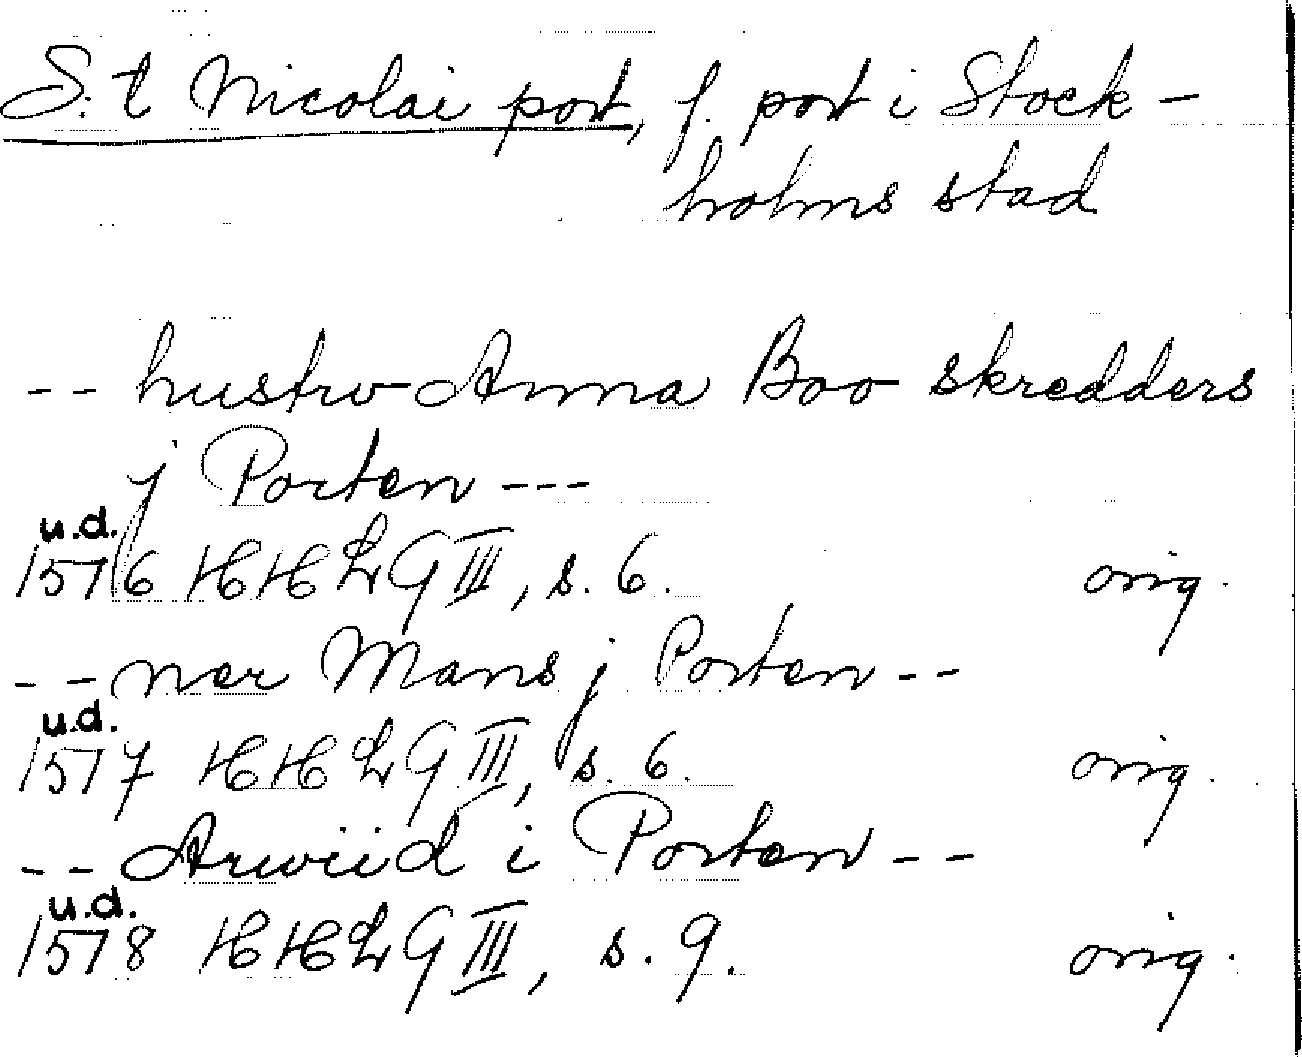 S:t Nicolai port, f. port i Stock-
holms stad
-- hustrv Anna Boo skredders
j Porten ---
u.d.
1576 HHLG III, s. 6. orig.
-- ner Mans j Porten --
u.d.
1577 HHLG III, s. 6. orig.
-- Arwiid i Porten --
u.d.
1578 HHLG III, s. 9. orig.